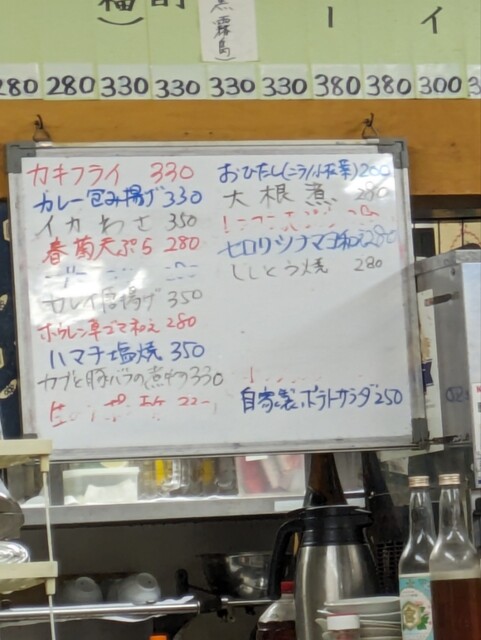 黒霧島)
280 280 330 330 330 330 380 380 300
カキフライ 330
カレー包み揚げ 330
イカわさ 350
春菊天ぷら 280
カレイ唐揚げ 350
ホウレン草ゴマ和え 280
ハマチ塩焼 350
カブと豚バラの煮物 330
おひたし(ニラ/小松菜) 200
大根煮 280
セロリツナマヨ和え 280
ししとう焼 280
自家製ポテトサラダ 250